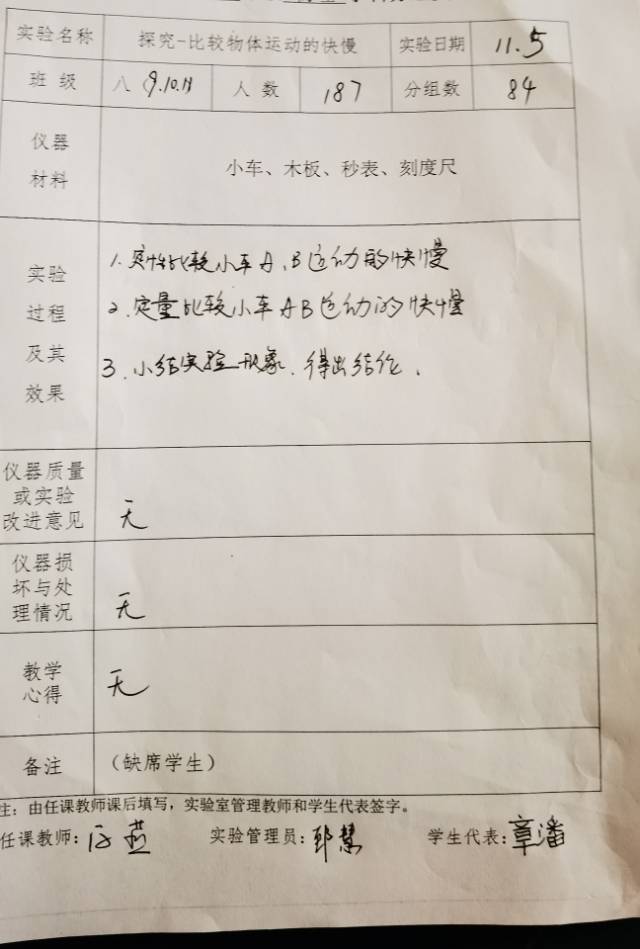 实验名称 探究-比较物体运动的快慢 实验日期 11.5
班级 八 9.10.11 人数 187 分组数 84
仪器
材料
小车、木板、秒表、刻度尺
实验
过程
及其
效果
1. 定性比较小车A、B运动的快慢
2. 定量比较小车AB运动的快慢
3. 小结实验形象. 得出结论.
仪器质量
或实验
改进意见
无
仪器损
坏与处
理情况
无
教学
心得
无
备注 (缺席学生)
注: 由任课教师课后填写,实验室管理教师和学生代表签字。
任课教师: 实验管理员: 学生代表: 章潘